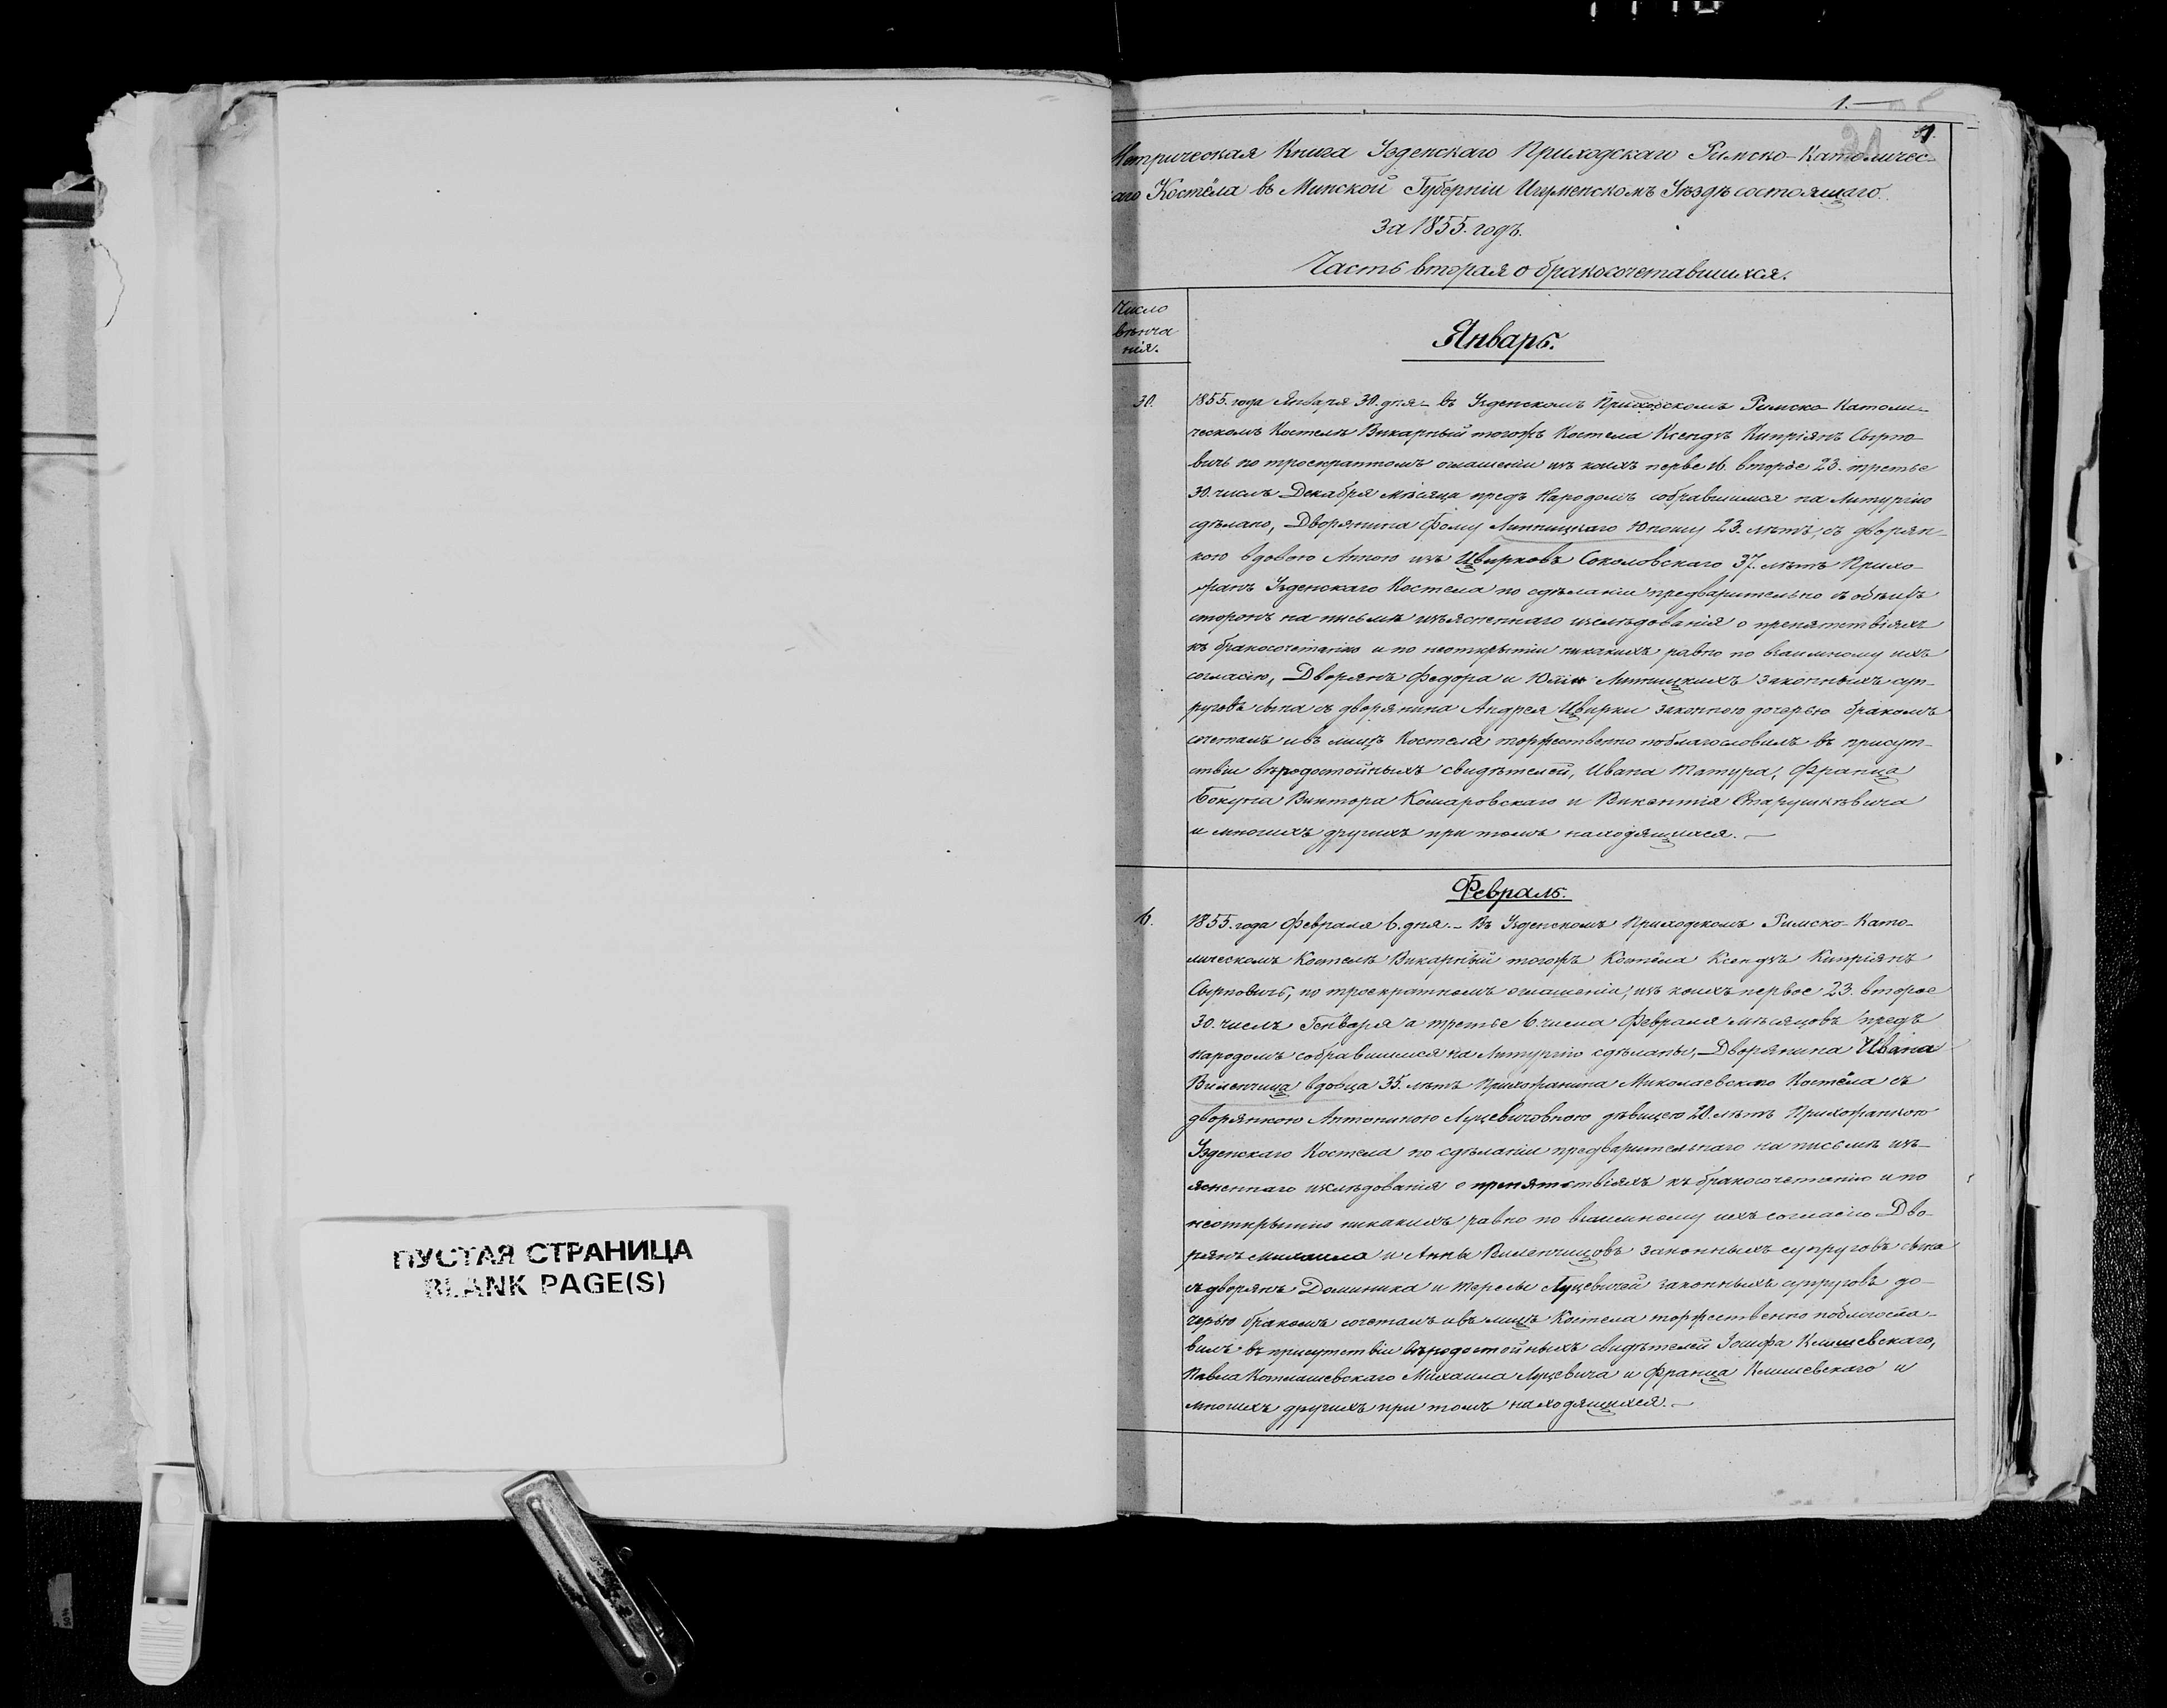 1.
Метрическая Книга Узденскаго Приходскаго Римско-Католичес-
каго Костёла въ Минской Губерніи Игуменскомъ Уѣздѣ состоящаго
За 1855. годъ.
Часть вторая о бракосочетавшихся.
Число
вѣнча
нія.
Январь.
30.
1855. года Января 30. дня – въ Узденскомъ Приходскомъ Римско-Католи-
ческомъ Костелѣ Викарный тогожъ Костела Ксендзъ Кипріянъ Сырпо-
вичъ по троекратномъ оглашеніи изъ коихъ перве 16. второе 23. третье
30. числъ Декабря мѣсяца предъ Народомъ собравшимся на Литургію
сдѣлано, Дворянина Фому Липницкаго Юношу 23. лѣтъ, съ дворян-
кою вдовою Анною изъ Цвирковъ Соколовскаго 37. лѣтъ Прихо-
жанъ Узденскаго Костела по сдѣланіи предварительно съ обѣихъ
сторонъ на письмѣ изъясненнаго изслѣдованія о препятствіяхъ
къ бракосочетанію и по неоткрытіи никакихъ равно по взаимному ихъ
согласію, Дворянъ Федора и Юліи Липницкихъ законныхъ суп-
руговъ сына съ дворянина Андрея Цвирки законною дочерью бракомъ
сочеталъ и въ лицѣ Костела торжественно поблагословилъ въ присут-
ствіи вѣродостойныхъ свидѣтелей, Ивана Татура, Франца
Бокуна Виктора Комаровскаго и Викентія Старушкевича
и многихъ другихъ при томъ находящихся.
Февраль.
6.
1855. года Февраля 6. дня. – Въ Узденскомъ Приходскомъ Римско-Като-
лическомъ Костелѣ Викарный тогожъ Костёла Ксендзъ Кипріянъ
Сырповичъ, по троекратномъ оглашеніи, изъ коихъ первое 23. второе
30. числъ Генваря а третье 6. числа Февраля мѣсяцовъ предъ
народомъ собравшимся на Литургію сдѣланы, – Дворянина Ивана
Виленчица вдовца 35. лѣтъ Прихожанина Миколаевскаго Костёла съ
дворянкою Антониною Луцевичовною дѣвицею 20. лѣтъ Прихожанкою
Узденскаго Костела по сдѣланіи предварительнаго на письмѣ изъ-
ясненнаго изслѣдованія о препятствіяхъ къ бракосочетанію и по
неоткрытію никакихъ равно по взаимному ихъ согласію Дво-
рянъ Михаила и Анны Виленчицовъ законныхъ супруговъ сына
съ дворянъ Доминика и Терезы Луцевичей законныхъ супруговъ до-
черью бракомъ сочеталъ и въ лицѣ Костела торжественно поблагосло-
вилъ въ присутствіи вѣродостойныхъ свидѣтелей Іосифа Климшевскаго,
Павла Котлашевскаго Михаила Луцевича и Франца Климшевскаго и
многихъ другихъ при томъ находящихся. –
ПУСТАЯ СТРАНИЦА
BLANK PAGE(S)